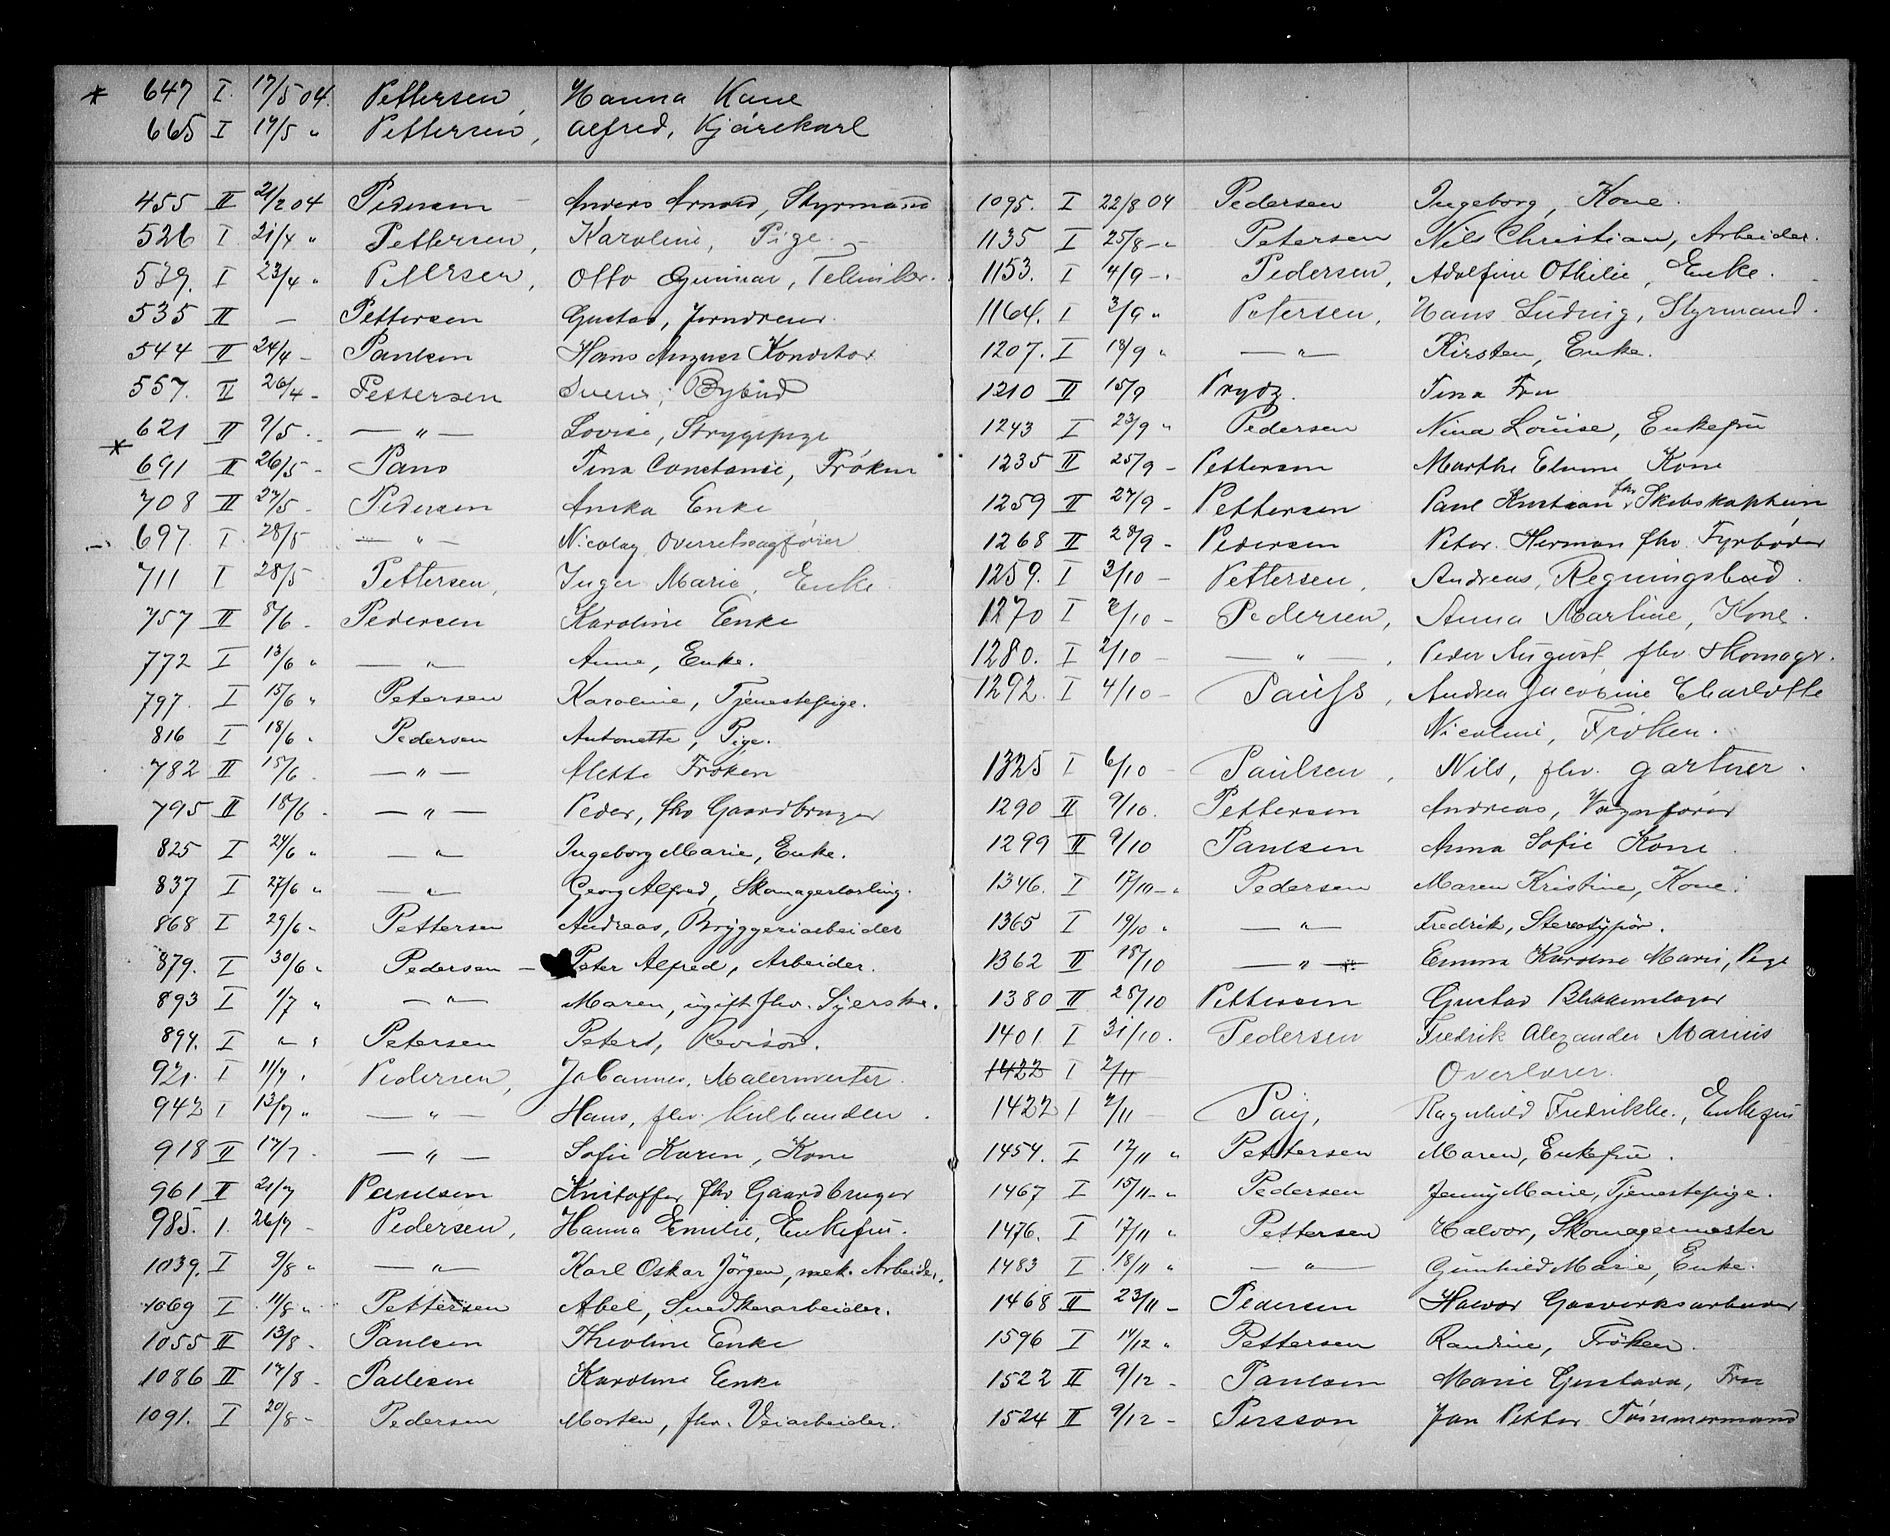 * 647 I 17/5 04. Pettersen, Hanna Kone
665 I 17/5 " Pettersen, Alfred, Kjørekarl
455 II 21/2 04 Pedersen Anders Arnold, Styrmand
526 I 21/4 " Pettersen, Karoline, Pige.
539. I 23/4 " Pettersen, Otto Gunnar, Tekniker.
535 II — Pettersen Gustav, Jerndreier
544 II 24/4 - Paulsen Hans August Konditor
557. II 26/4 - Pettersen Svend, Bybud
621 II 9/5. — " — Lovise, Strygepige
* 691 II 26/5 - Paus Tina Constanse, Frøken
708 II 27/5 - Pedersen Anska Enke
697. I 28/5 — " — Nicolay Overretssagfører
711 I 28/5 Pettersen, Inger Marie, Enke
757 II 8/6 - Pedersen Karoline Enke
772 I 13/6 " — " — Anne, Enke.
797. I 15/6 " Petersen Karoline, Tjenestepige.
816 I 18/6 " Pedersen Antonette, Pige.
782 II 15/6 — " — Alette Frøken
795 II 18/6 - — " — Peder, fhv Gaardbruger
825 I 24/6 " — " — Ingeborg Marie, Enke.
837 I 27/6 " — " — Georg Alfred, Skomagerlærling.
868 I 29/6 " Pettersen Andreas, Bryggeriarbeider
879. I 30/6 " Pedersen — Peter Alfred, Arbeider.
893 I 1/7 " — " — Maren, ugift fhv. Syerske.
894. I " " Petersen Peter, Revisor.
921. I 11/7 " Pedersen, Johannes, Malermester.
942 I 13/7 " — " — Hans, fhv. Kulhandler.
918 II 17/7 - — " — Sofie Karen, Kone
961 II 21/7 Paulsen Kristoffer fhv Gaardbruger
985. I. 26/7 - Pedersen, Hanna Emilie, Enkefru.
1039. I 9/8 " — " — Karl Oskar Jörgen, mek. Arbeider.
1069 I 11/8 " Pettersen Abel, Snedkerarbeider.
1055 II 13/8 - Paulsen Theoline Enke
1086 II 17/8 - Pallesen Karoline Enke
1091. I 20/8 - Pedersen Morten, fhv. Veiarbeider.
1095. I 22/8 04 Pedersen Ingeborg, Kone.
1135 I 25/8 - " Petersen Nils Christian, Arbeider.
1153. I 4/9 - " Pedersen, Adolfine Othilie, Enke.
1164. I 3/9 " Petersen, Hans Ludvig, Styrmand.
1207. I 18/9 " — " — Kirsten, Enke.
1210 II 15/9 Prydz. Tina Fru
1243 I 23/9 " Pedersen Nina Louise, Enkefru
1235 II 25/9 - Pettersen Marthe Kone
1259 II 27/9 - Pettersen Paul Kristian fhv. Skibskaptein
1268 II 28/9 - Pedersen Peter Herman fhv. Fyrbøder
1259. I 2/10 - Pettersen, Andreas, Regningsbud.
1270 I 2/10 - Pedersen, Anna Martine, Kone.
1280. I 2/10 - — " —, Peder August, fhv. Skomagr.
1292. I 4/10 - Pauss, Andrea Jacobine Charlotte
Nicoline, Frøken.
1325 I 6/10 - Paulsen, Nils, fhv. gartner.
1290 II 9/10. Pettersen Andreas, Vognfører
1299 II 9/10 Paulsen Anna Sofie Kone
1346. I 17/10 - " Pedersen Maren Kristine, Kone.
1365 I 19/10 " — " — Fredrik, Stereotypør.
1362 II 18/10 — " — Emma Karoline Marie, Pige
1380 II 28/10 Pettersen Gustav Blikkenslager
1401. I 31/10. Pedersen Fredrik Alexander Marius
1422 I 2/11 Overlærer.
1422 I 2/11 Pay, Ragnhild Fredrikke., Enkefru
1454. I 12/11 " Pettersen Maren, Enkefru.
1467 I 15/11 - " Pedersen Jenny Marie, Tjenestepige.
1476. I 17/11 " Pettersen Halvor, Skomagermester
1483 I 18/11 " — " — Gunhild Marie, Enke.
1468 II 23/11 - Pedersen Halvor Gasverksarbeider
1596 I 14/12 " Pettersen Randine, Frøken.
1522 II 9/12 - Paulsen Marie Gustava, Fru
1524 II 9/12 - Persson Jan Petter Tømmermand